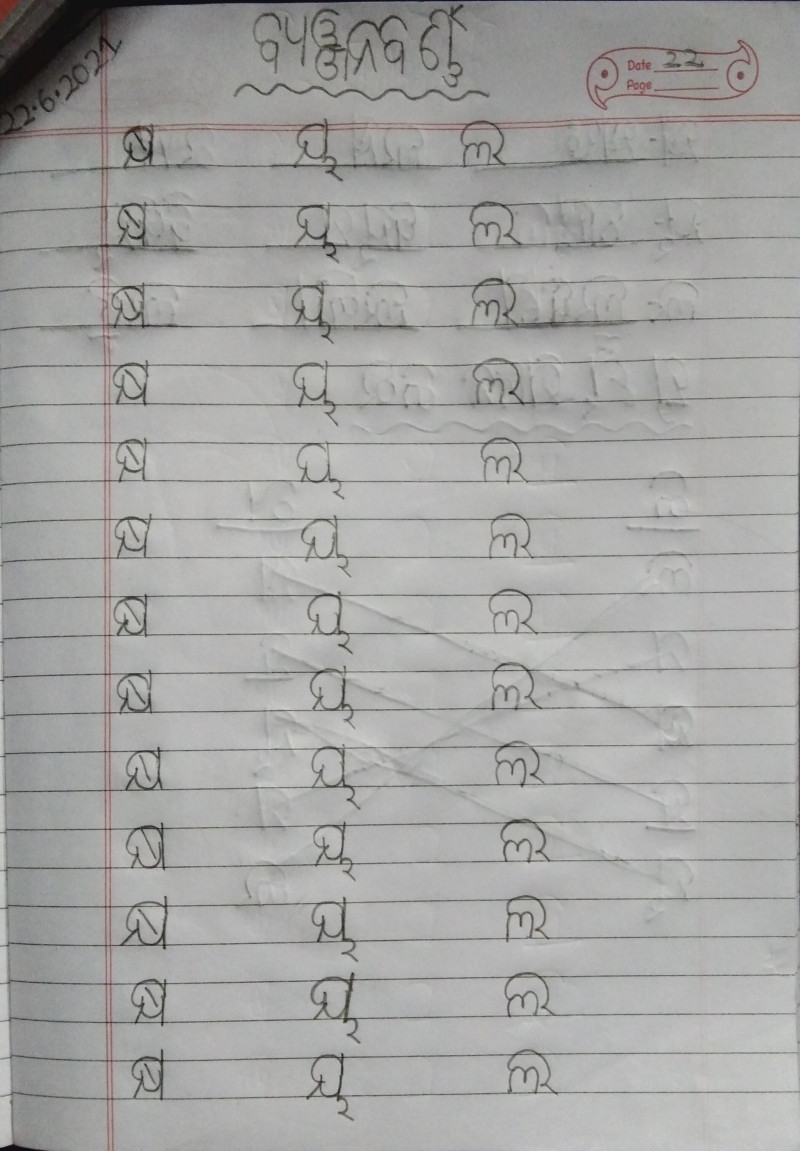 22.6.2021
ବ୍ୟଞ୍ଜନବର୍ଣ୍ଣ
Date 22
Page
ଷ ୟ ଲ
ଷ ୟ ଲ
ଷ ୟ ଲ
ଷ ୟ ଲ
ଷ ୟ ଲ
ଷ ୟ ଲ
ଷ ୟ ଲ
ଷ ୟ ଲ
ଷ ୟ ଲ
ଷ ୟ ଲ
ଷ ୟ ଲ
ଷ ୟ ଲ
ଷ ୟ ଲ